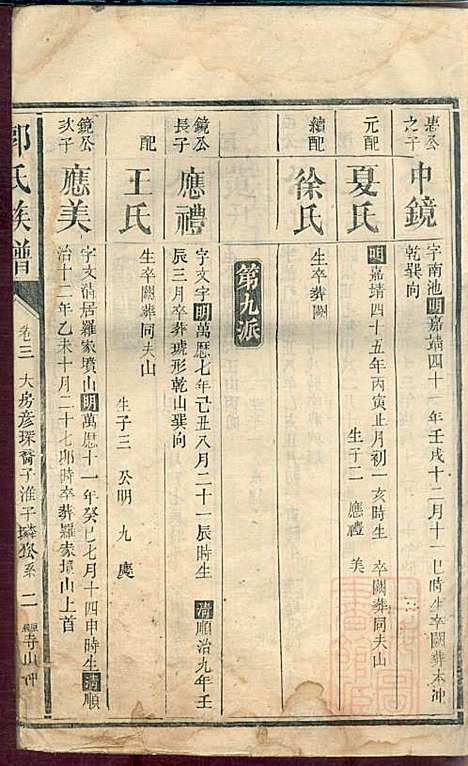 惠公之子
中鏡
字南池明嘉靖四十一年壬戌十二月十一巳時生卒闕葬本冲
乾巽向
元配
夏氏
明嘉靖四十五年丙寅正月初一亥時生 卒闕葬同夫山
生子二 應禮 美
續配
徐氏
生卒葬闕
第九派
鏡公長子
應禮
字文字明萬歷七年己丑八月二十一辰時生 清順治九年壬
辰三月卒葬琥形乾山巽向
配
王氏
生卒闕葬同夫山
生子三 公明 九慶
鏡公次子
應美
字文 居羅家墳山明萬歷十一年癸巳七月十四申時生清順
治十二年乙未十月二十七卯時卒葬羅家墳山上首
郭氏族譜
卷三 大房彥琛裔子淮子璘 系 二
寺山冲